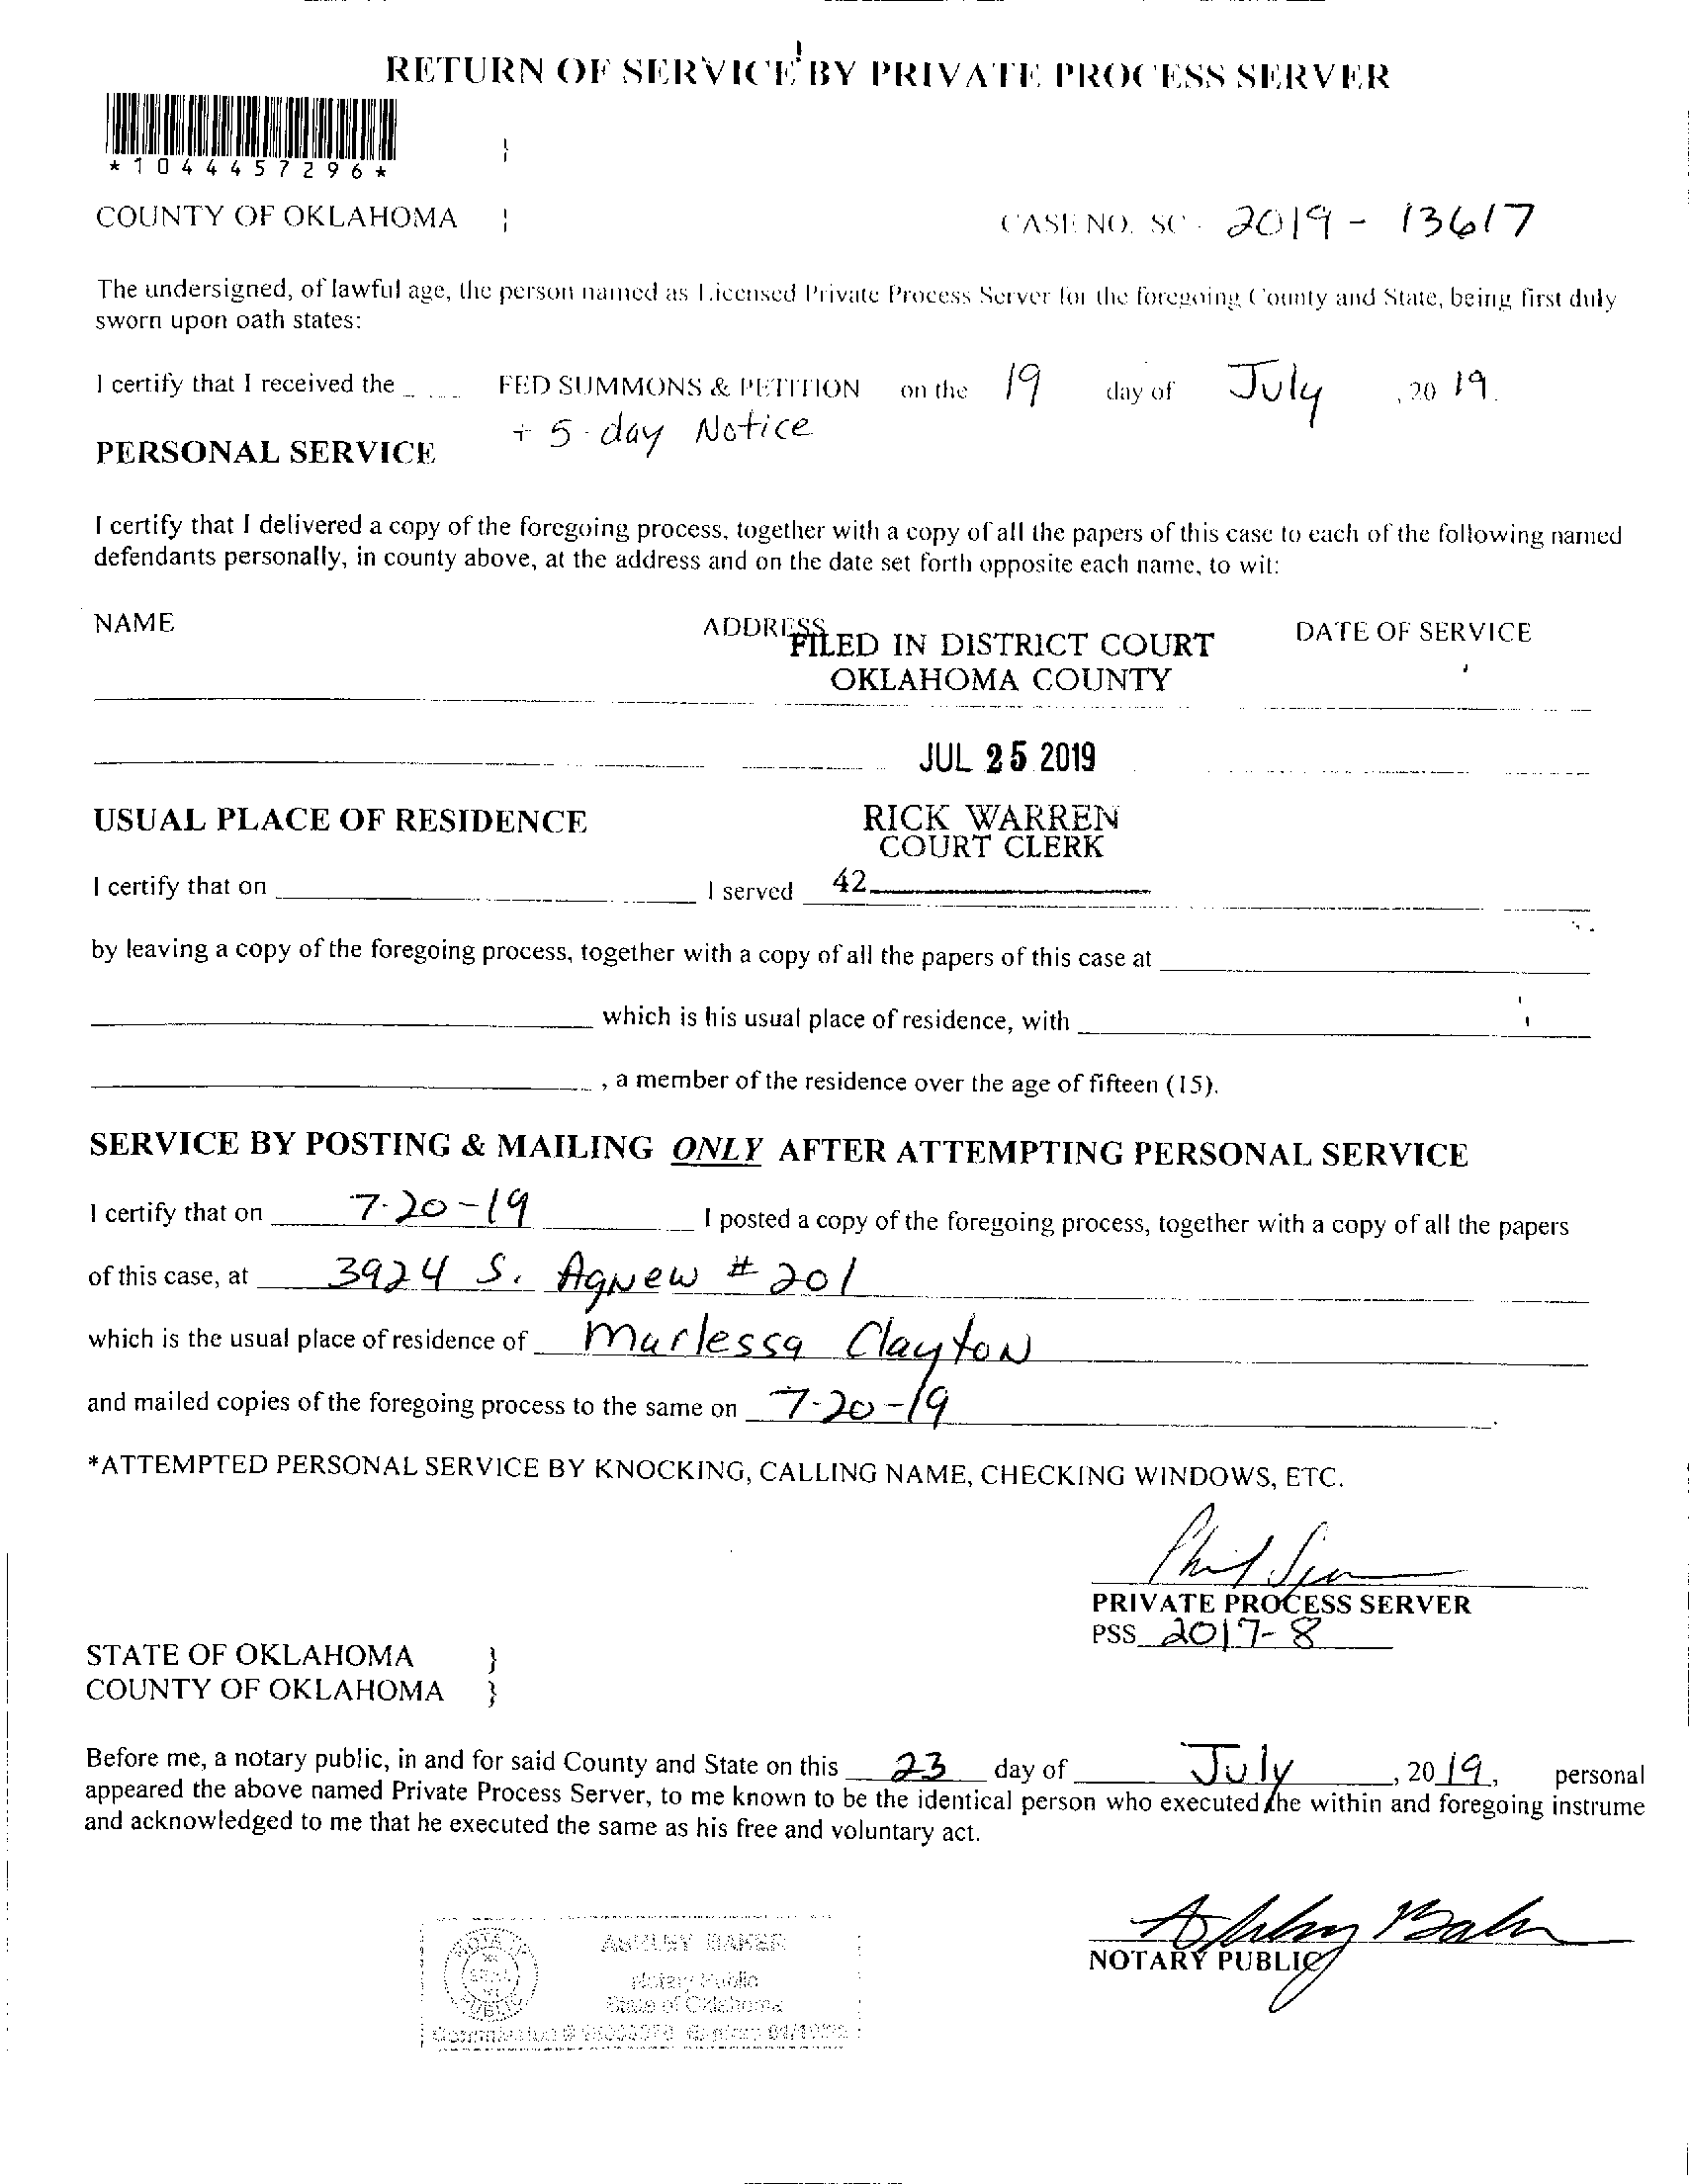 RETURN OF SERVICE BY PRIVATE PROCESS SERVER
*1044457296*
COUNTY OF OKLAHOMA
CASE NO. SC - 2019 - 13617
The undersigned, of lawful age, the person named as Licensed Private Process Server for the foregoing County and State, being first duly
sworn upon oath states:
I certify that I received the FED SUMMONS & PETITION on the 19 day of July , 20 19.
+ 5-day Notice
PERSONAL SERVICE
I certify that I delivered a copy of the foregoing process, together with a copy of all the papers of this case to each of the following named
defendants personally, in county above, at the address and on the date set forth opposite each name, to wit:
NAME ADDRESS DATE OF SERVICE
FILED IN DISTRICT COURT
OKLAHOMA COUNTY
JUL 25 2019
RICK WARREN
COURT CLERK
42
USUAL PLACE OF RESIDENCE
I certify that on I served
by leaving a copy of the foregoing process, together with a copy of all the papers of this case at
which is his usual place of residence, with
, a member of the residence over the age of fifteen (15).
SERVICE BY POSTING & MAILING ONLY AFTER ATTEMPTING PERSONAL SERVICE
I certify that on 7-20-19 I posted a copy of the foregoing process, together with a copy of all the papers
of this case, at 3924 S. Agnew # 201
which is the usual place of residence of Marlessa Clayton
and mailed copies of the foregoing process to the same on 7-20-19.
*ATTEMPTED PERSONAL SERVICE BY KNOCKING, CALLING NAME, CHECKING WINDOWS, ETC.
PRIVATE PROCESS SERVER
PSS 2017-8
STATE OF OKLAHOMA }
COUNTY OF OKLAHOMA }
Before me, a notary public, in and for said County and State on this 23 day of July, 20 19, personal
appeared the above named Private Process Server, to me known to be the identical person who executed the within and foregoing instrume
and acknowledged to me that he executed the same as his free and voluntary act.
Ashley Baker
NOTARY PUBLIC
ASHLEY BAKER
Notary Public
State of Oklahoma